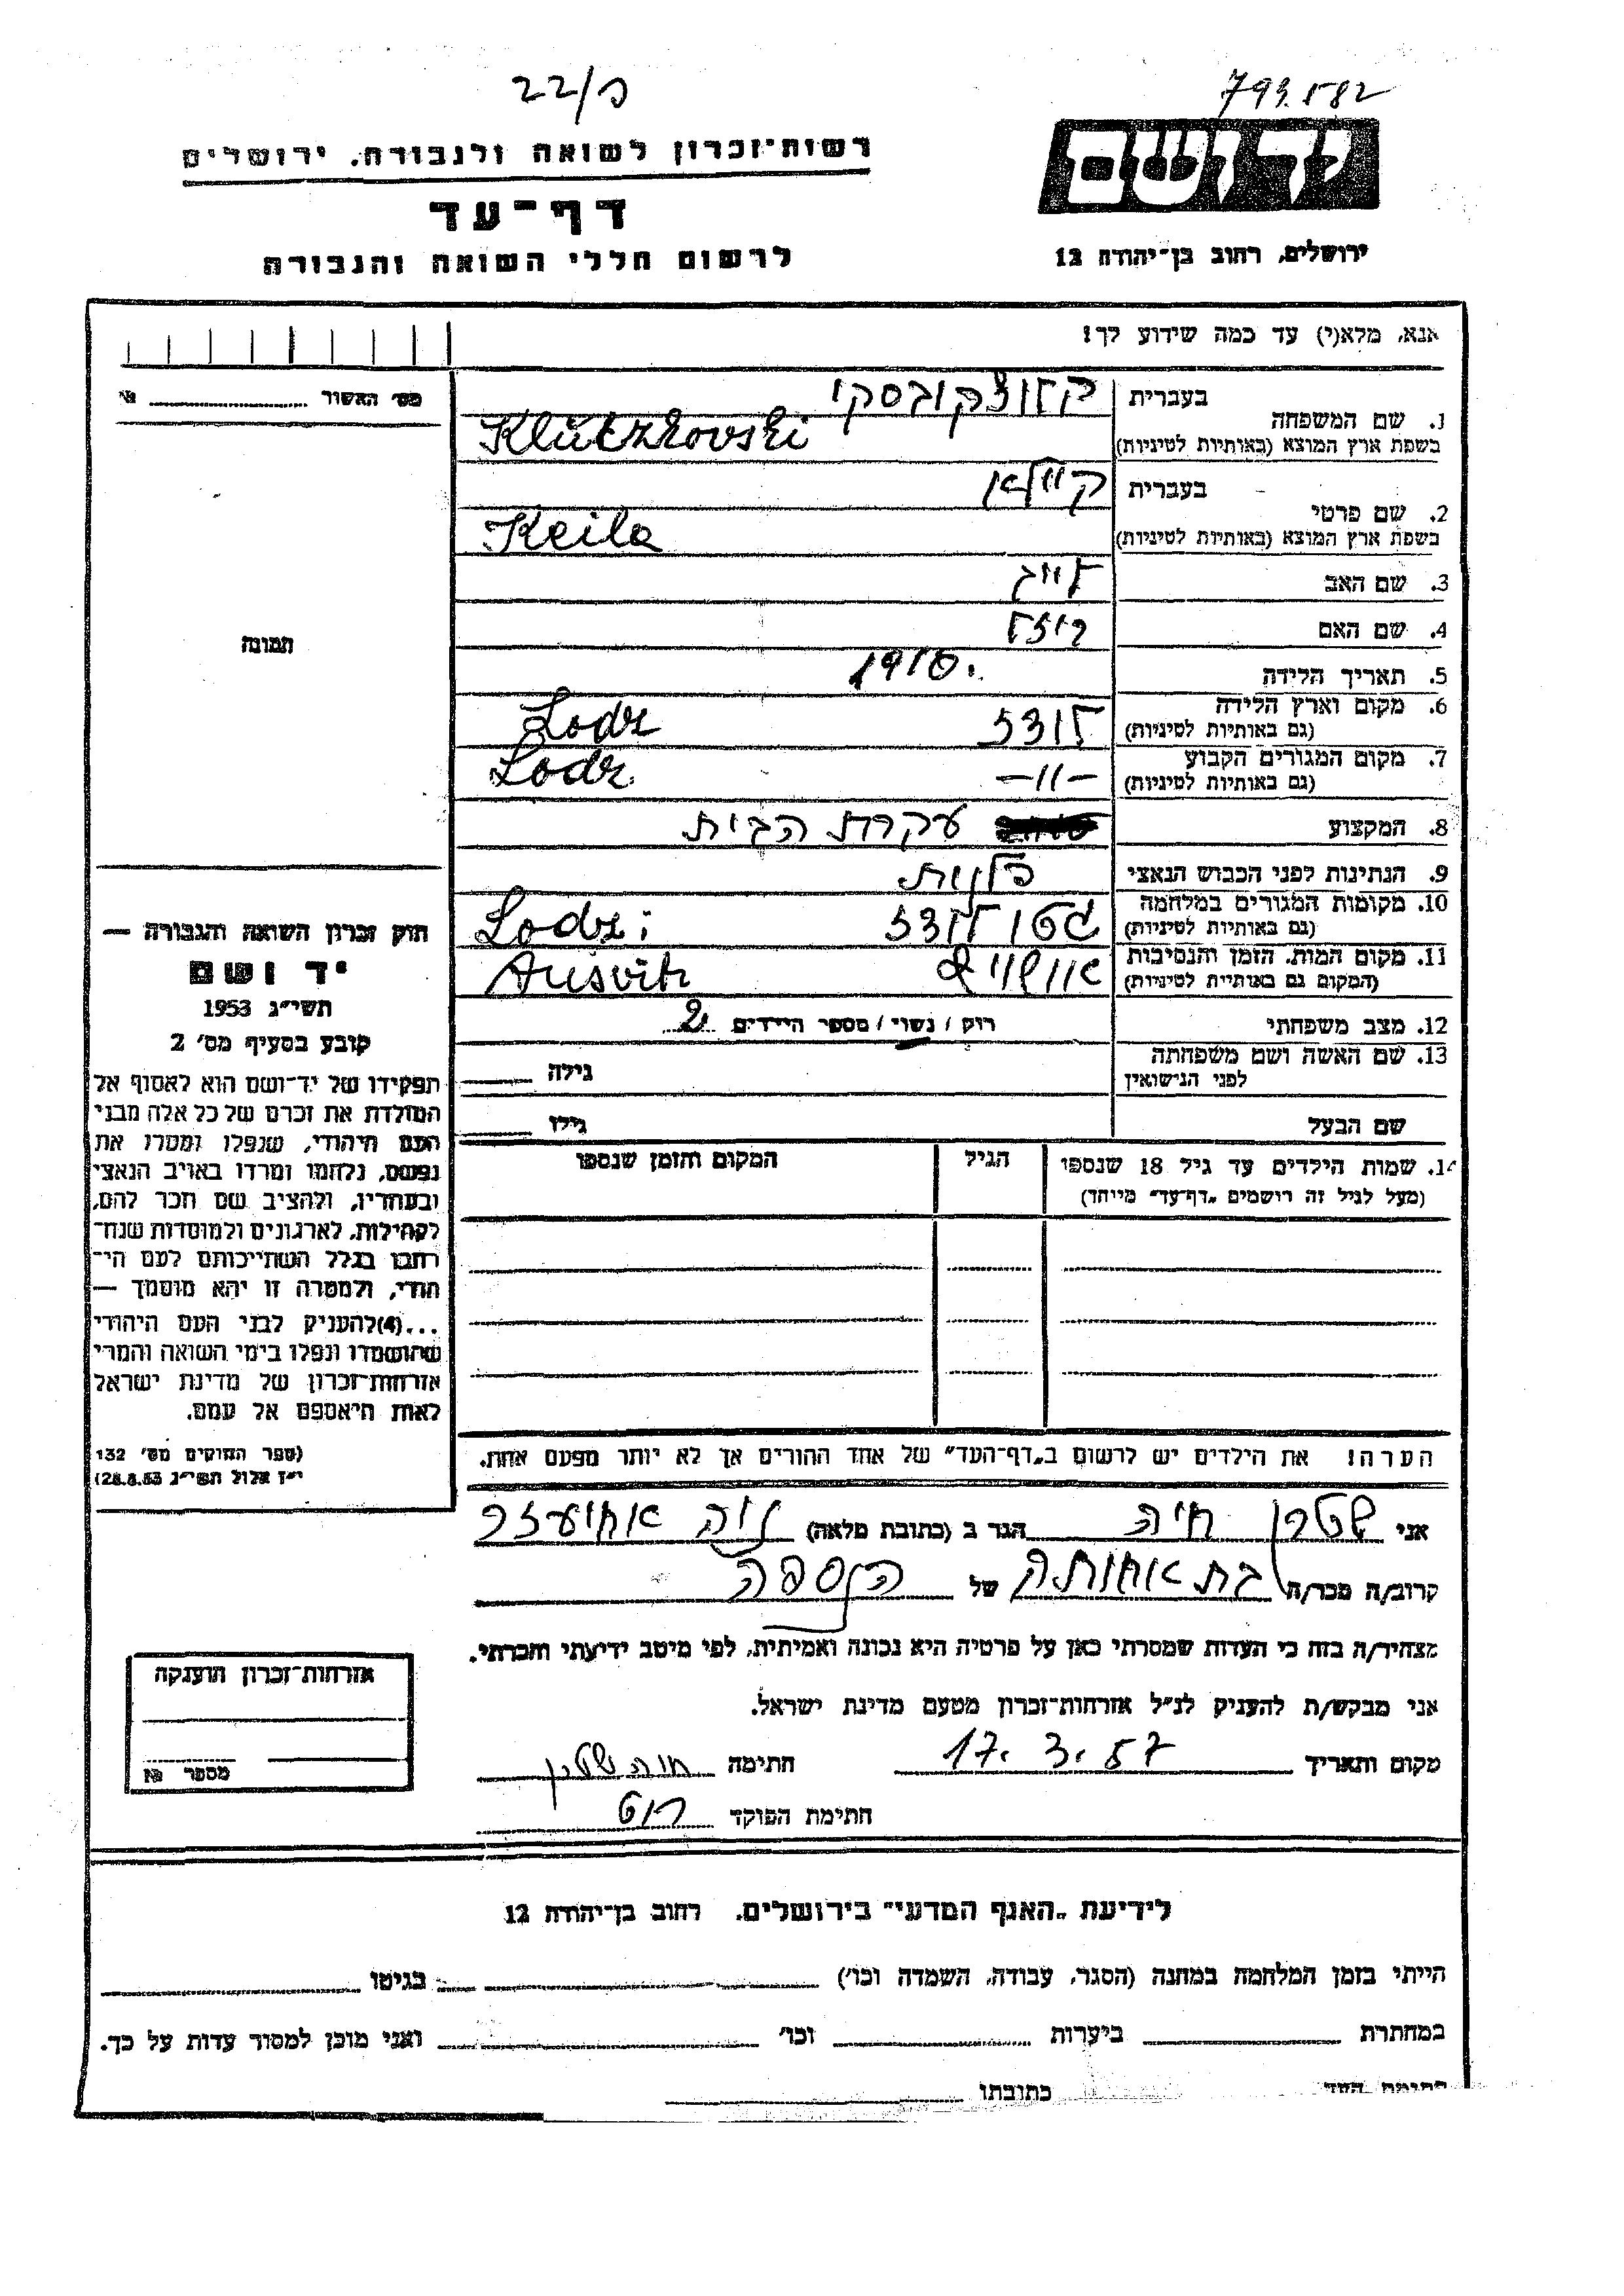 793.582
22/פ
יד ושם
רשות-זכרון לשואה ולגבורה, ירושלים
דף-עד
לרשום חללי השואה והגבורה
ירושלים, רחוב בן-יהודה 12
אנא, מלא(י) עד כמה שידוע לך!
מס׳ האשור № 
1. שם המשפחה בעברית קלוצקובסקי
בשפת ארץ המוצא (באותיות לטיניות) Klutzkovski
2. שם פרטי בעברית קיילא
בשפת ארץ המוצא (באותיות לטיניות) Keila
3. שם האב זייג
4. שם האם
5. תאריך הלידה 1910.
6. מקום וארץ הלידה (גם באותיות לטיניות) לודז Lodz
7. מקום המגורים הקבוע (גם באותיות לטיניות) -״- Lodz
8. המקצוע עקרת הבית
9. הנתינות לפני הכבוש הנאצי פלנית
10. מקומות המגורים במלחמה (גם באותיות לטיניות) גטו לודז Lodz;
11. מקום המות, הזמן והנסיבות (המקום גם באותיות לטיניות) אושויץ Ausvitz
12. מצב משפחתי רוק / נשוי / מספר הילדים 2
13. שם האשה ושם משפחתה לפני הנישואין גילה
שם הבעל גילו
14. שמות הילדים עד גיל 18 שנספו הגיל המקום והזמן שנספו
(מעל לגיל זה רושמים „דף-עד״ מיוחד)
הערה! את הילדים יש לרשום ב„דף-העד״ של אחד ההורים אך לא יותר מפעם אחת.
תמונה
חוק זכרון השואה והגבורה —
יד ושם
תשי״ג 1953
קובע בסעיף מס׳ 2
תפקידו של יד-ושם הוא לאסוף אל
המולדת את זכרם של כל אלה מבני
העם היהודי, שנפלו ומסרו את
נפשם, נלחמו ומרדו באויב הנאצי
ובעוזריו, ולהציב שם וזכר להם,
לקהילות, לארגונים ולמוסדות שנח-
רבו בגלל השתייכותם לעם הי-
הודי, ולמטרה זו יהא מוסמך —
...(4) להעניק לבני העם היהודי
שהושמדו ונפלו בימי השואה והמרי
אזרחות-זכרון של מדינת ישראל
לאות היאספם אל עמם.
(ספר החוקים מס׳ 132
י״ז אלול תשי״ג 28.8.53)
אני שטרן חיה הגר ב (כתובת מלאה) נוה אחיעזר
קרוב/ה מכר/ה בת אחותה של הנספה
מצהיר/ה בזה כי העדות שמסרתי כאן על פרטיה היא נכונה ואמיתית, לפי מיטב ידיעתי והכרתי.
אני מבקש/ת להעניק לנ״ל אזרחות-זכרון מטעם מדינת ישראל.
מקום ותאריך 17. 3. 57 חתימה חיה שטרן
חתימת הפוקד
אזרחות-זכרון הוענקה
מספר №
לידיעת „האגף המדעי״ בירושלים, רחוב בן-יהודה 12
הייתי בזמן המלחמה במחנה (הסגר, עבודה, השמדה וכו׳) בגיטו
במחתרת ביערות וכו׳ ואני מוכן למסור עדות על כך.
חתימת העד כתובתו